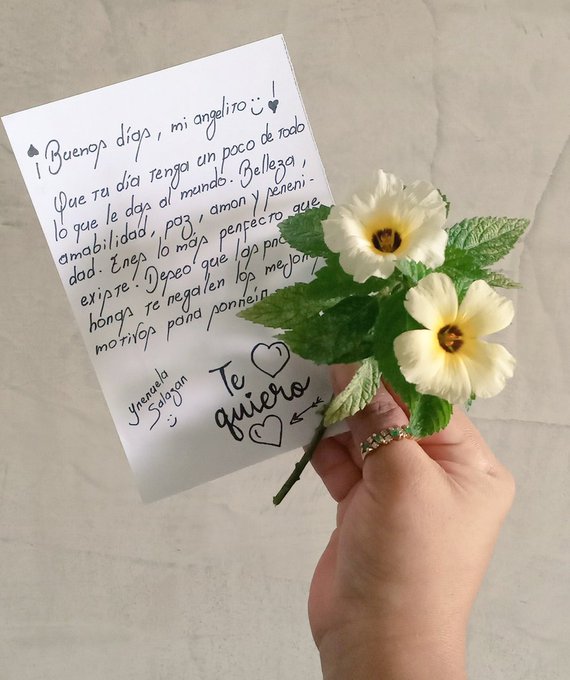 ¡Buenos días, mi angelito :)!
Que tu día tenga un poco de todo
lo que le das al mundo. Belleza,
amabilidad, paz, amor y sereni-
dad. Eres lo más perfecto que
existe. Deseo que las
horas te regalen los
motivos para sonreír
Salazar :)
Te
quiero